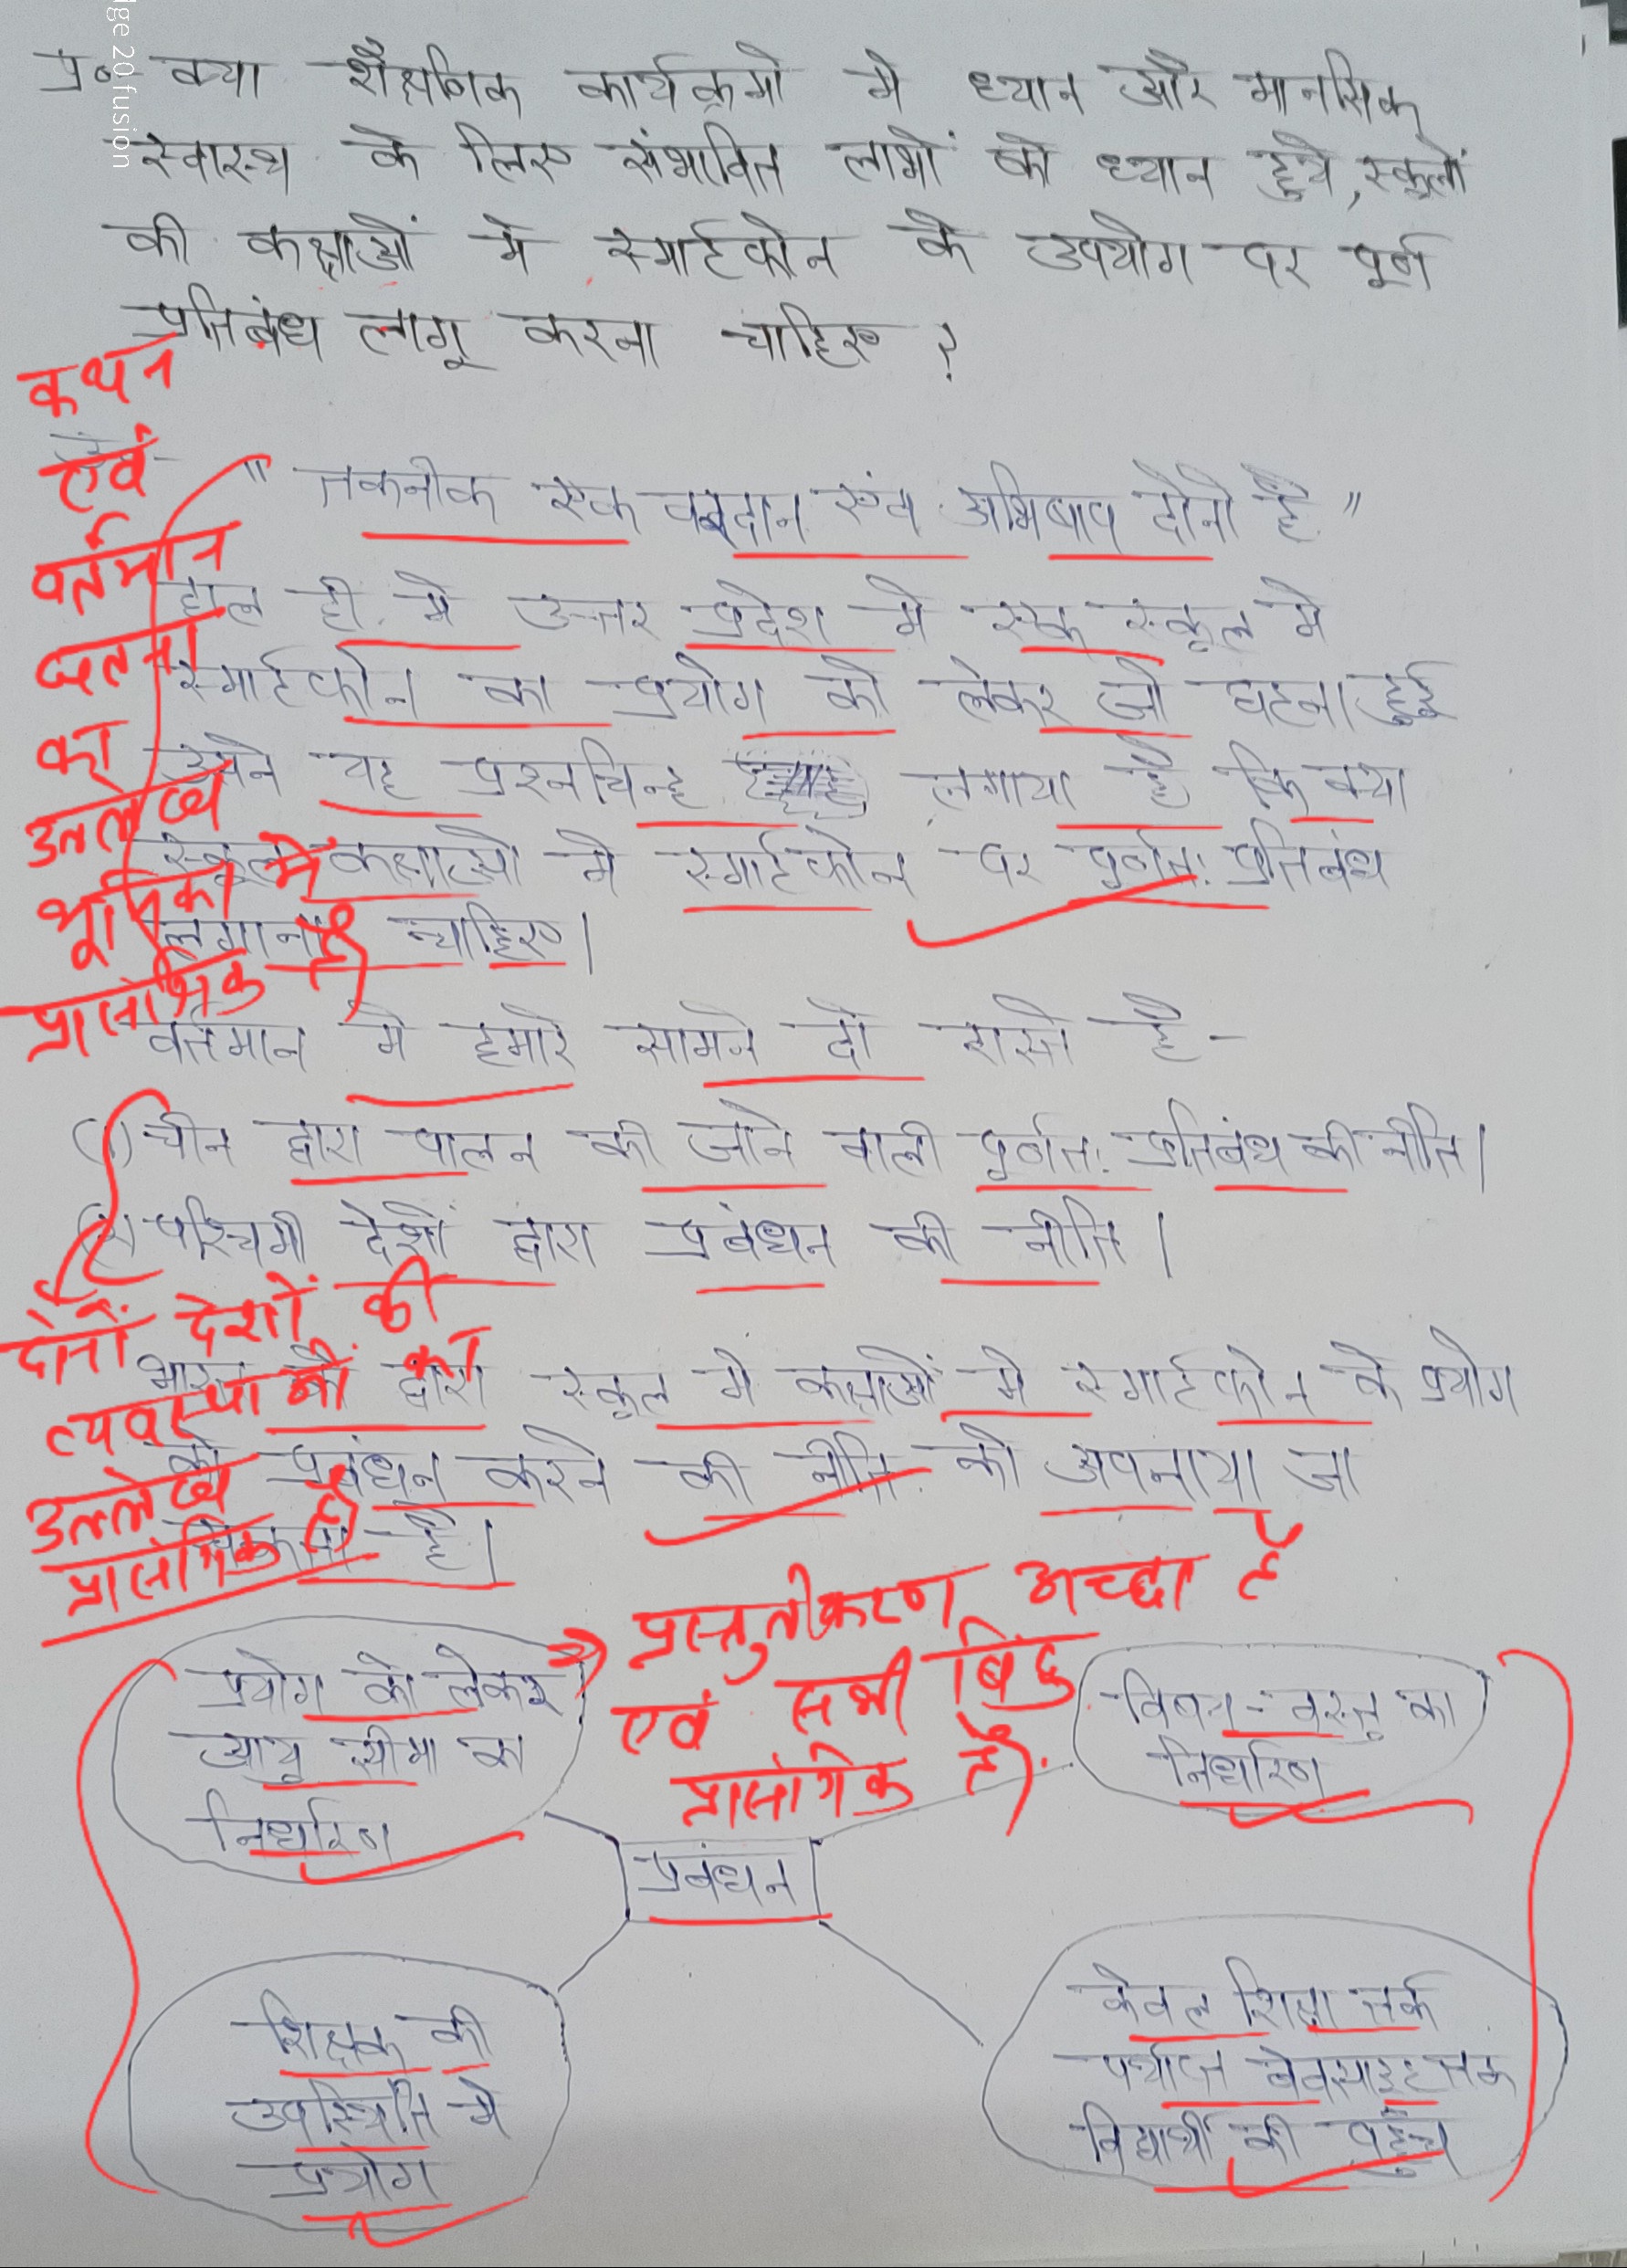 प्र०- क्या शैक्षणिक कार्यक्रमो मे ध्यान और मानसिक
स्वास्थ्य के लिए संभावित लाभों को ध्यान हुये, स्कूलों
की कक्षाओं मे स्मार्टफोन के उपयोग पर पूर्ण
प्रतिबंध लागू करना चाहिए ?
कथन
एवं
वर्तमान
घटना
का
उल्लेख
भूमिका में
प्रासंगिक है
उ०-
" तकनीक एक वरदान एंव अभिषाप दोनो है "
हाल ही मे उत्तर प्रदेश मे एक स्कूल मे
स्मार्टफोन का प्रयोग को लेकर जो घटना हुई
उसने यह प्रश्नचिन्ह लगाया है कि क्या
स्कूल कक्षाओ मे स्मार्टफोन पर पूर्णतः प्रतिबंध
लगाना चाहिए।
वर्तमान मे हमारे सामने दो रास्ते है-
(1) चीन द्वारा पालन की जाने वाली पूर्णतः प्रतिबंध की नीति।
(2) पश्चिमी देशों द्वारा प्रबंधन की नीति।
दोनों देशों की
व्यवस्थाओं का
उल्लेख
प्रासंगिक है
भारत के द्वारा स्कूल मे कक्षाओं मे स्मार्टफोन के प्रयोग
को प्रबंधन करने की नीति को अपनाया जा
सकता है।
प्रस्तुतीकरण अच्छा है
एवं सभी बिंदु
प्रासंगिक है।
प्रयोग को लेकर
आयु सीमा का
निर्धारण
विषय-वस्तु का
निर्धारण
प्रबंधन
शिक्षक की
उपस्थिति मे
प्रयोग
केवल शिक्षा तर्क
पर्याप्त वेबसाइट तक
विद्यार्थी की पहुँच
dge 20 fusion